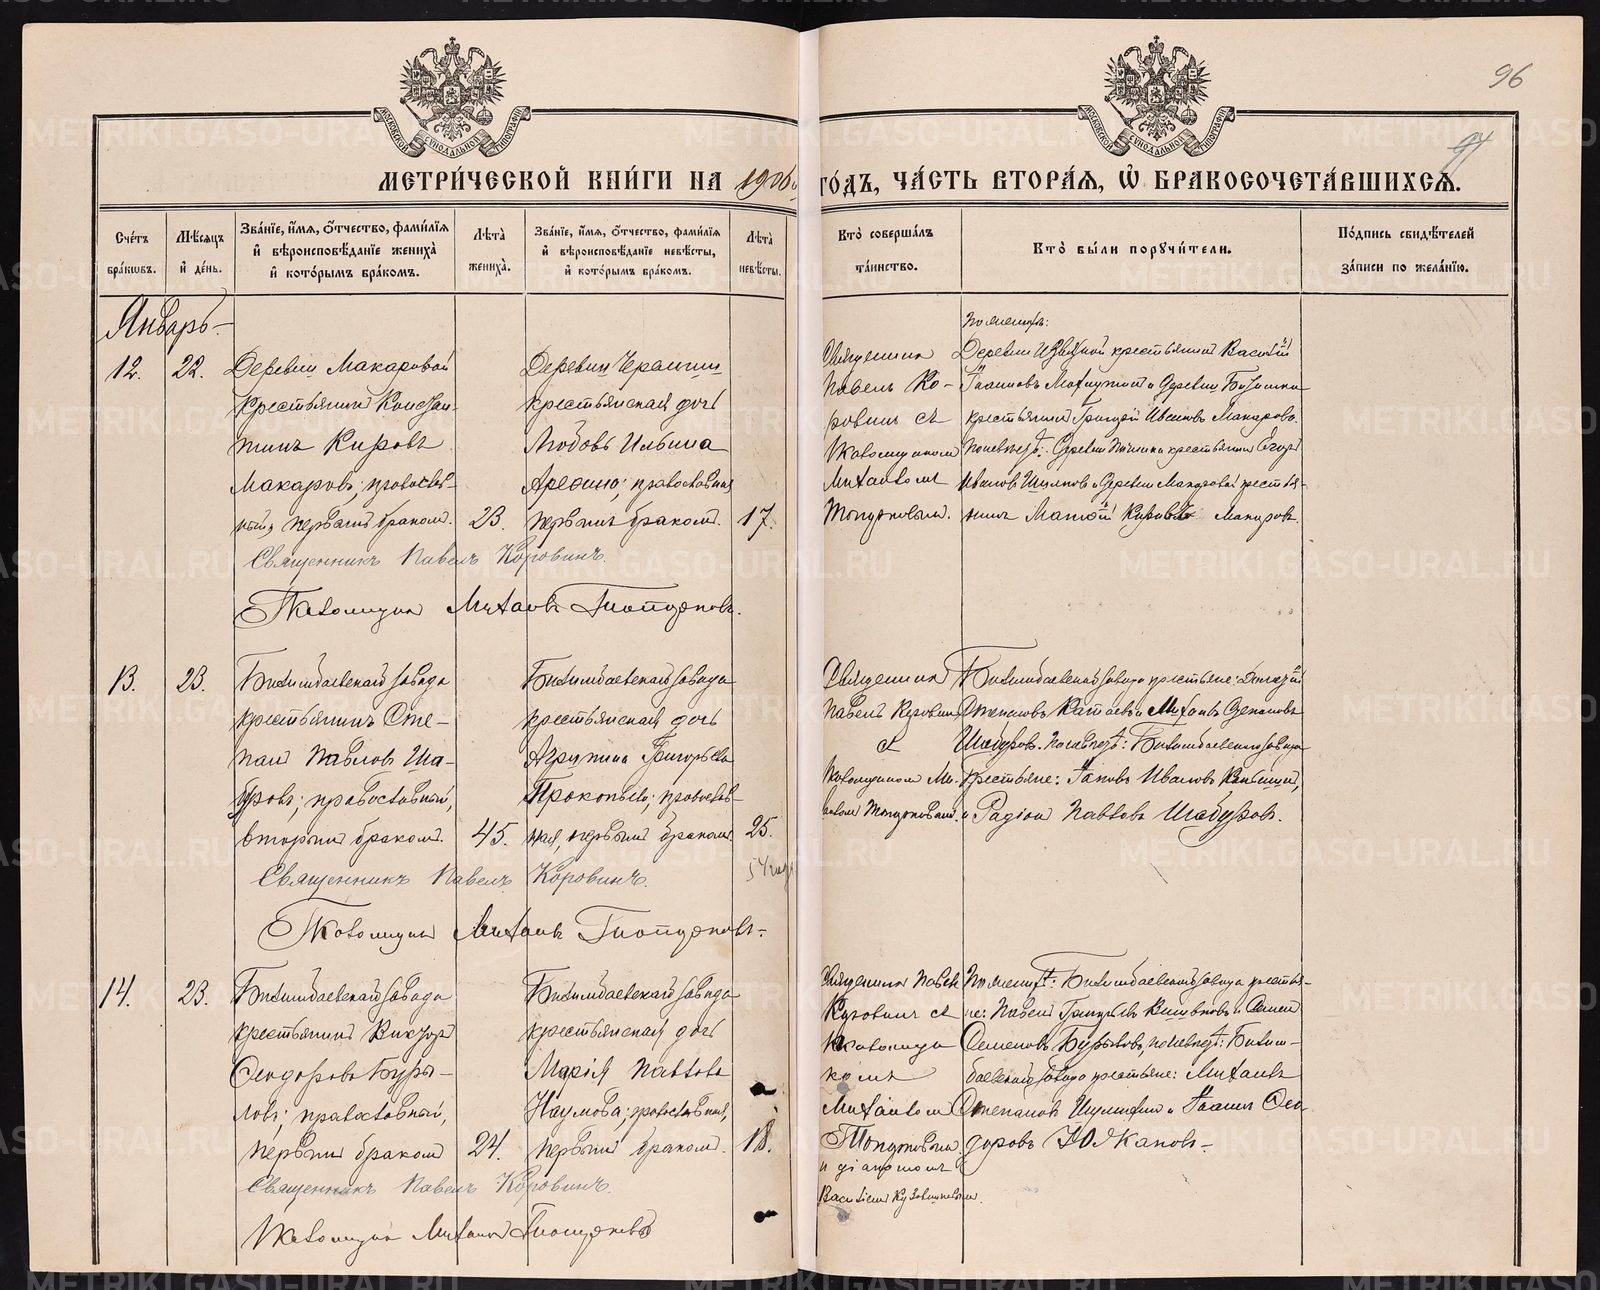 96
97
МЕТРИ́ЧЕСКОЙ КНИ́ГИ НА 1906 ГО́ДЪ, ЧА́СТЬ ВТОРА́Я, Ѽ БРАКОСОЧЕТА́ВШИХСЯ.
Сче́тъ бра́кѡвъ.
Мѣсяцъ и де́нь.
Зва́нїе, и́мя, о́тчество, фами́лїя и вѣроисповѣданїе жениха̀ и кото́рымъ бра́комъ.
Лѣта̀ жениха̀.
Зва́нїе, и́мя, о́тчество, фами́лїя и вѣроисповѣданїе невѣсты, и кото́рымъ бра́комъ.
Лѣта̀ невѣсты.
Кто̀ соверша́лъ та́инство.
Кто̀ бы́ли порꙋчи́тели.
По́дпись свидѣтелей за́писи по жела́нїю.
Январь
12.
22.
Деревни Макаровой
крестьянинъ Констан-
тинъ Кировъ
Макаровъ; православ-
ный, первымъ бракомъ.
23.
Деревни
крестьянская дочь
Любовь Ильина
православная
первымъ бракомъ.
17.
Священникъ
Павелъ Ко-
ровинъ съ
псаломщикомъ
Михаиломъ
Топорковымъ.
По женихѣ:
Деревни крестьянинъ Василій
Іоанновъ и деревни
крестьянинъ Григорій Ивановъ Макаровъ.
По невѣстѣ: деревни крестьянинъ Егоръ
Ивановъ и деревни Макаровой крестья-
нинъ Кировъ Макаровъ.
Священникъ Павелъ Коровинъ.
Псаломщикъ Михаилъ Топорковъ.
13.
23.
Билимбаевскаго завода
крестьянинъ Сте-
панъ Павловъ Ша-
буровъ; православный,
вторымъ бракомъ.
45.
Билимбаевскаго завода
крестьянская дочь
Агрипина Григорьева
Прокопьева; православ-
ная, первымъ бракомъ.
25.
Священникъ
Павелъ Коровинъ
съ
псаломщикомъ Ми-
хаиломъ Топорковымъ.
Билимбаевскаго завода крестьяне:
Степановъ Катаевъ и Михаилъ Степановъ
Шабуровъ. По невѣстѣ: Билимбаевскаго завода
крестьяне: Іаковъ Ивановъ
и Родіонъ Павловъ Шабуровъ.
Священникъ Павелъ Коровинъ.
Псаломщикъ Михаилъ Топорковъ.
14.
23.
Билимбаевскаго завода
крестьянинъ Викторъ
Ѳеодоровъ Буры-
ловъ; православный,
первымъ бракомъ
24.
Билимбаевскаго завода
крестьянская дочь
Марія Павлова
Наумова; православная,
первымъ бракомъ.
18.
Священникъ Павелъ
Коровинъ съ
псаломщи-
комъ
Михаиломъ
Топорковымъ
и діакономъ
Василіемъ Кузовниковымъ.
По женихѣ: Билимбаевскаго завода крестья-
не: Павелъ Григорьевъ и Семенъ
Семеновъ Бурыловъ, по невѣстѣ: Билим-
баевскаго завода крестьяне: Михаилъ
Степановъ и Іоаннъ Ѳео-
доровъ Юлкановъ.
Священникъ Павелъ Коровинъ.
Псаломщикъ Михаилъ Топорковъ
METRIKI.GASO-URAL.RU